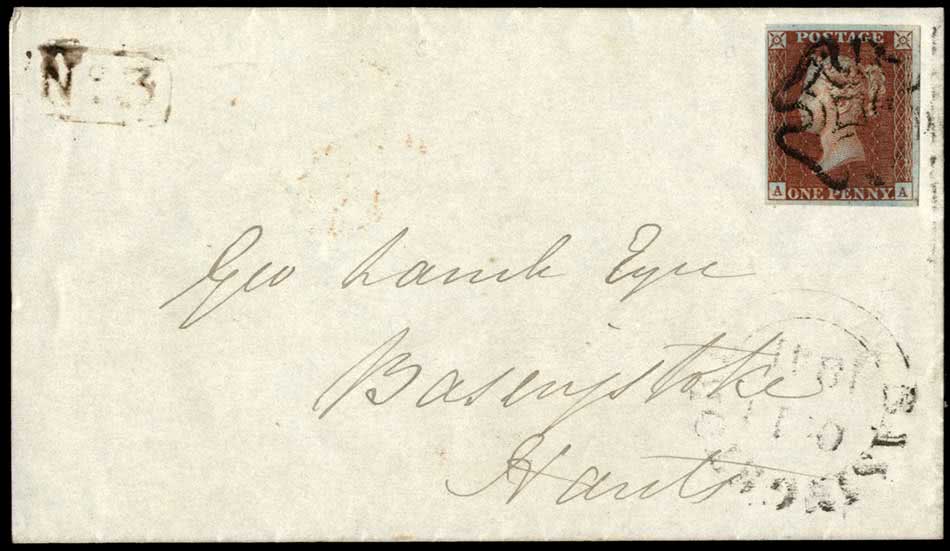 No 3
POSTAGE
A ONE PENNY A
Geo Lamb Esqre
Basingstoke
Hants